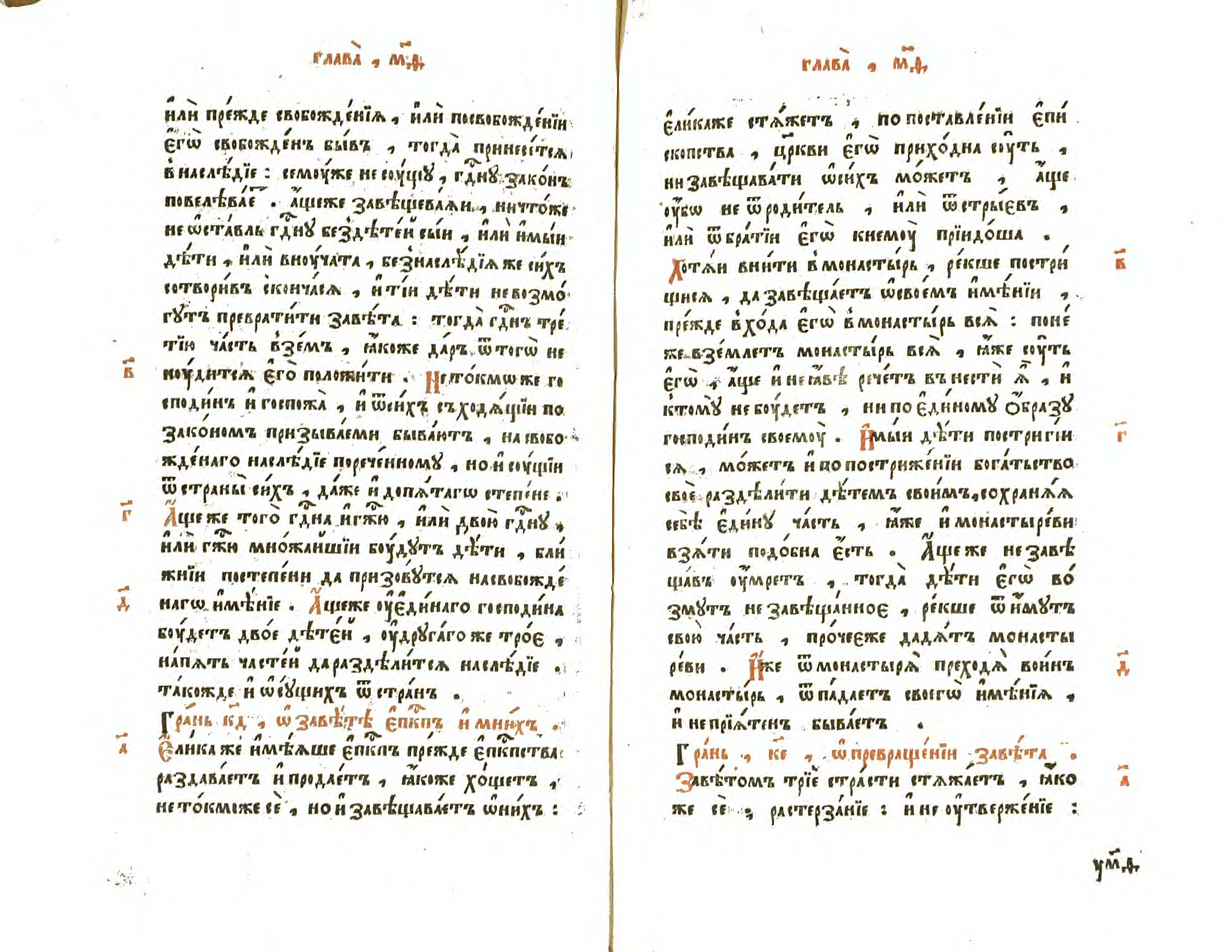 глава̀ , м҃ѳ
и҆лѝ пре́жде свобожде́нїѧ , и҆лѝ посвобожде́нїи
є҆гѡ̀ свобожде́нъ бы́въ , тогда̀ принесе́тсѧ
в наслѣ́дїе : семоу́же не соу́щу , гдⷭ҇ну зако́нъ
повелѣва́еⷮ . а҆́щеже завѣщева́ѧи , ничто́же
не ѡ҆ста́вль гдⷭ҇ну бездѣте́й сы́и , и҆лѝ и҆мы́и
дѣ́ти , и҆лѝ вноуча́та , безнаслѣ́дїѧ же си́хъ
сотвори́въ сконча́сѧ , и҆ ті́и дѣ́ти невозмо́
гутъ преврати́ти завѣ́та : тогда̀ гдⷭ҇нъ тре́
тїю ча́сть взе́мъ , ꙗ҆́коже да́ръ ѿ тогѡ̀ не
ноу́дитсѧ є҆го̀ положи́ти . Не то́кмѡ же го
споди́нъ и҆ госпожа̀ , и҆ ѿ си́хъ съходѧ́щїи по
зако́номъ призыва́еми быва́ютъ , на свобо
жде́наго наслѣ́дїе порече́нному , но и҆ соу́щїи
ѿ страны̀ си́хъ , да́же и҆ до пѧ́тагѡ степе́не .
А҆́ще же того̀ гдⷭ҇на и҆ гжⷭ҇ю , и҆лѝ двою̀ гдⷭ҇ну ,
и҆лѝ гжⷭ҇ю мно́жайшїи боу́дутъ дѣ́ти , бли́
жнїи по степе́ни да призову́тсѧ на свобожде́
нагѡ и҆мѣ́нїе . А҆́щеже оу҆ є҆ди́наго господи́на
боу́детъ дво́е дѣте́й , оу҆ друга́го же тро́е ,
на́ пѧть часте́й да раздѣли́тсѧ наслѣ́дїе .
та́кожде и҆ ѡ҆ су́щихъ ѿ стра́нъ .
Гра́нь к҃д , ѡ҆ завѣ́тѣ є҆пⷭ҇кпъ и҆ мни́хъ .
Є҆ли́ка же и҆мѣ́ѧше є҆пⷭ҇кпъ пре́жде є҆пⷭ҇кпства
раздава́етъ и҆ продае́тъ , ꙗ҆́коже хо́щетъ ,
не то́кмїже сѐ , но и҆ завѣщава́етъ ѡ҆ ни́хъ :
в҃
г҃
д҃
а҃
глава̀ , м҃ѳ
є҆ли́каже стѧ́жетъ , по поставле́нїи є҆пи
скопства , цр҃кви є҆гѡ̀ прихо́дна соу́ть ,
ни завѣщава́ти ѡ҆ си́хъ мо́жетъ , а҆́ще
оу҆́бѡ не ѿ роди́тель , и҆лѝ ѿ стры́євъ ,
и҆лѝ ѿ бра́тїи є҆гѡ̀ к немоу̀ прїидо́ша .
Хотѧ́и вни́ти в монасты́рь , ре́кше постри́
щисѧ , да завѣща́етъ ѡ҆ свое́мъ и҆мѣ́нїи ,
пре́жде вхо́да є҆гѡ̀ в монасты́рь всѧ̀ : поне́
же взе́млетъ монасты́рь всѧ̀ , ꙗ҆́же соу́ть
є҆гѡ̀ , а҆́ще и҆ не ꙗ҆́вѣ рече́тъ въ нестѝ ѧ҆̀ , и҆
ктомꙋ̀ не боу́детъ , ни по є҆ди́ному ѻ҆́бразу
господи́нъ своемоу̀ . И҆мы́и дѣ́ти постри́гїи
сѧ , мо́жетъ и҆ по пострижє́нїи бога́тьство
своѐ раздѣли́ти дѣ́темъ свои́мъ, сохранѧ́ѧ
себѣ̀ є҆ди́ну ча́сть , ꙗ҆́же и҆ монастыре́ви
взѧ́ти подо́бна є҆́сть . А҆́ще же не завѣ
ща́въ оу҆́мретъ , тогда̀ дѣ́ти є҆гѡ̀ во́
змутъ не завѣща́нноє , ре́кше ѿи́мутъ
свою̀ ча́сть , про́чеєже дадѧ́тъ монасты
ре́ви . И҆́же ѿ монастырѧ̀ преходѧ̀ во и҆́нъ
монасты́рь , ѿпа́даетъ своегѡ̀ и҆мѣ́нїѧ ,
и҆ не прїѧ́тенъ быва́етъ .
Гра́нь , к҃е , ѡ҆ превраще́нїи завѣ́та .
Завѣ́томъ трїѐ стра́сти стѧжа́етъ , ꙗ҆́ко
же сѐ , растерза́нїе : и҆ не оу҆твержє́нїе :
в҃
г҃
д҃
а҃
ум҃д